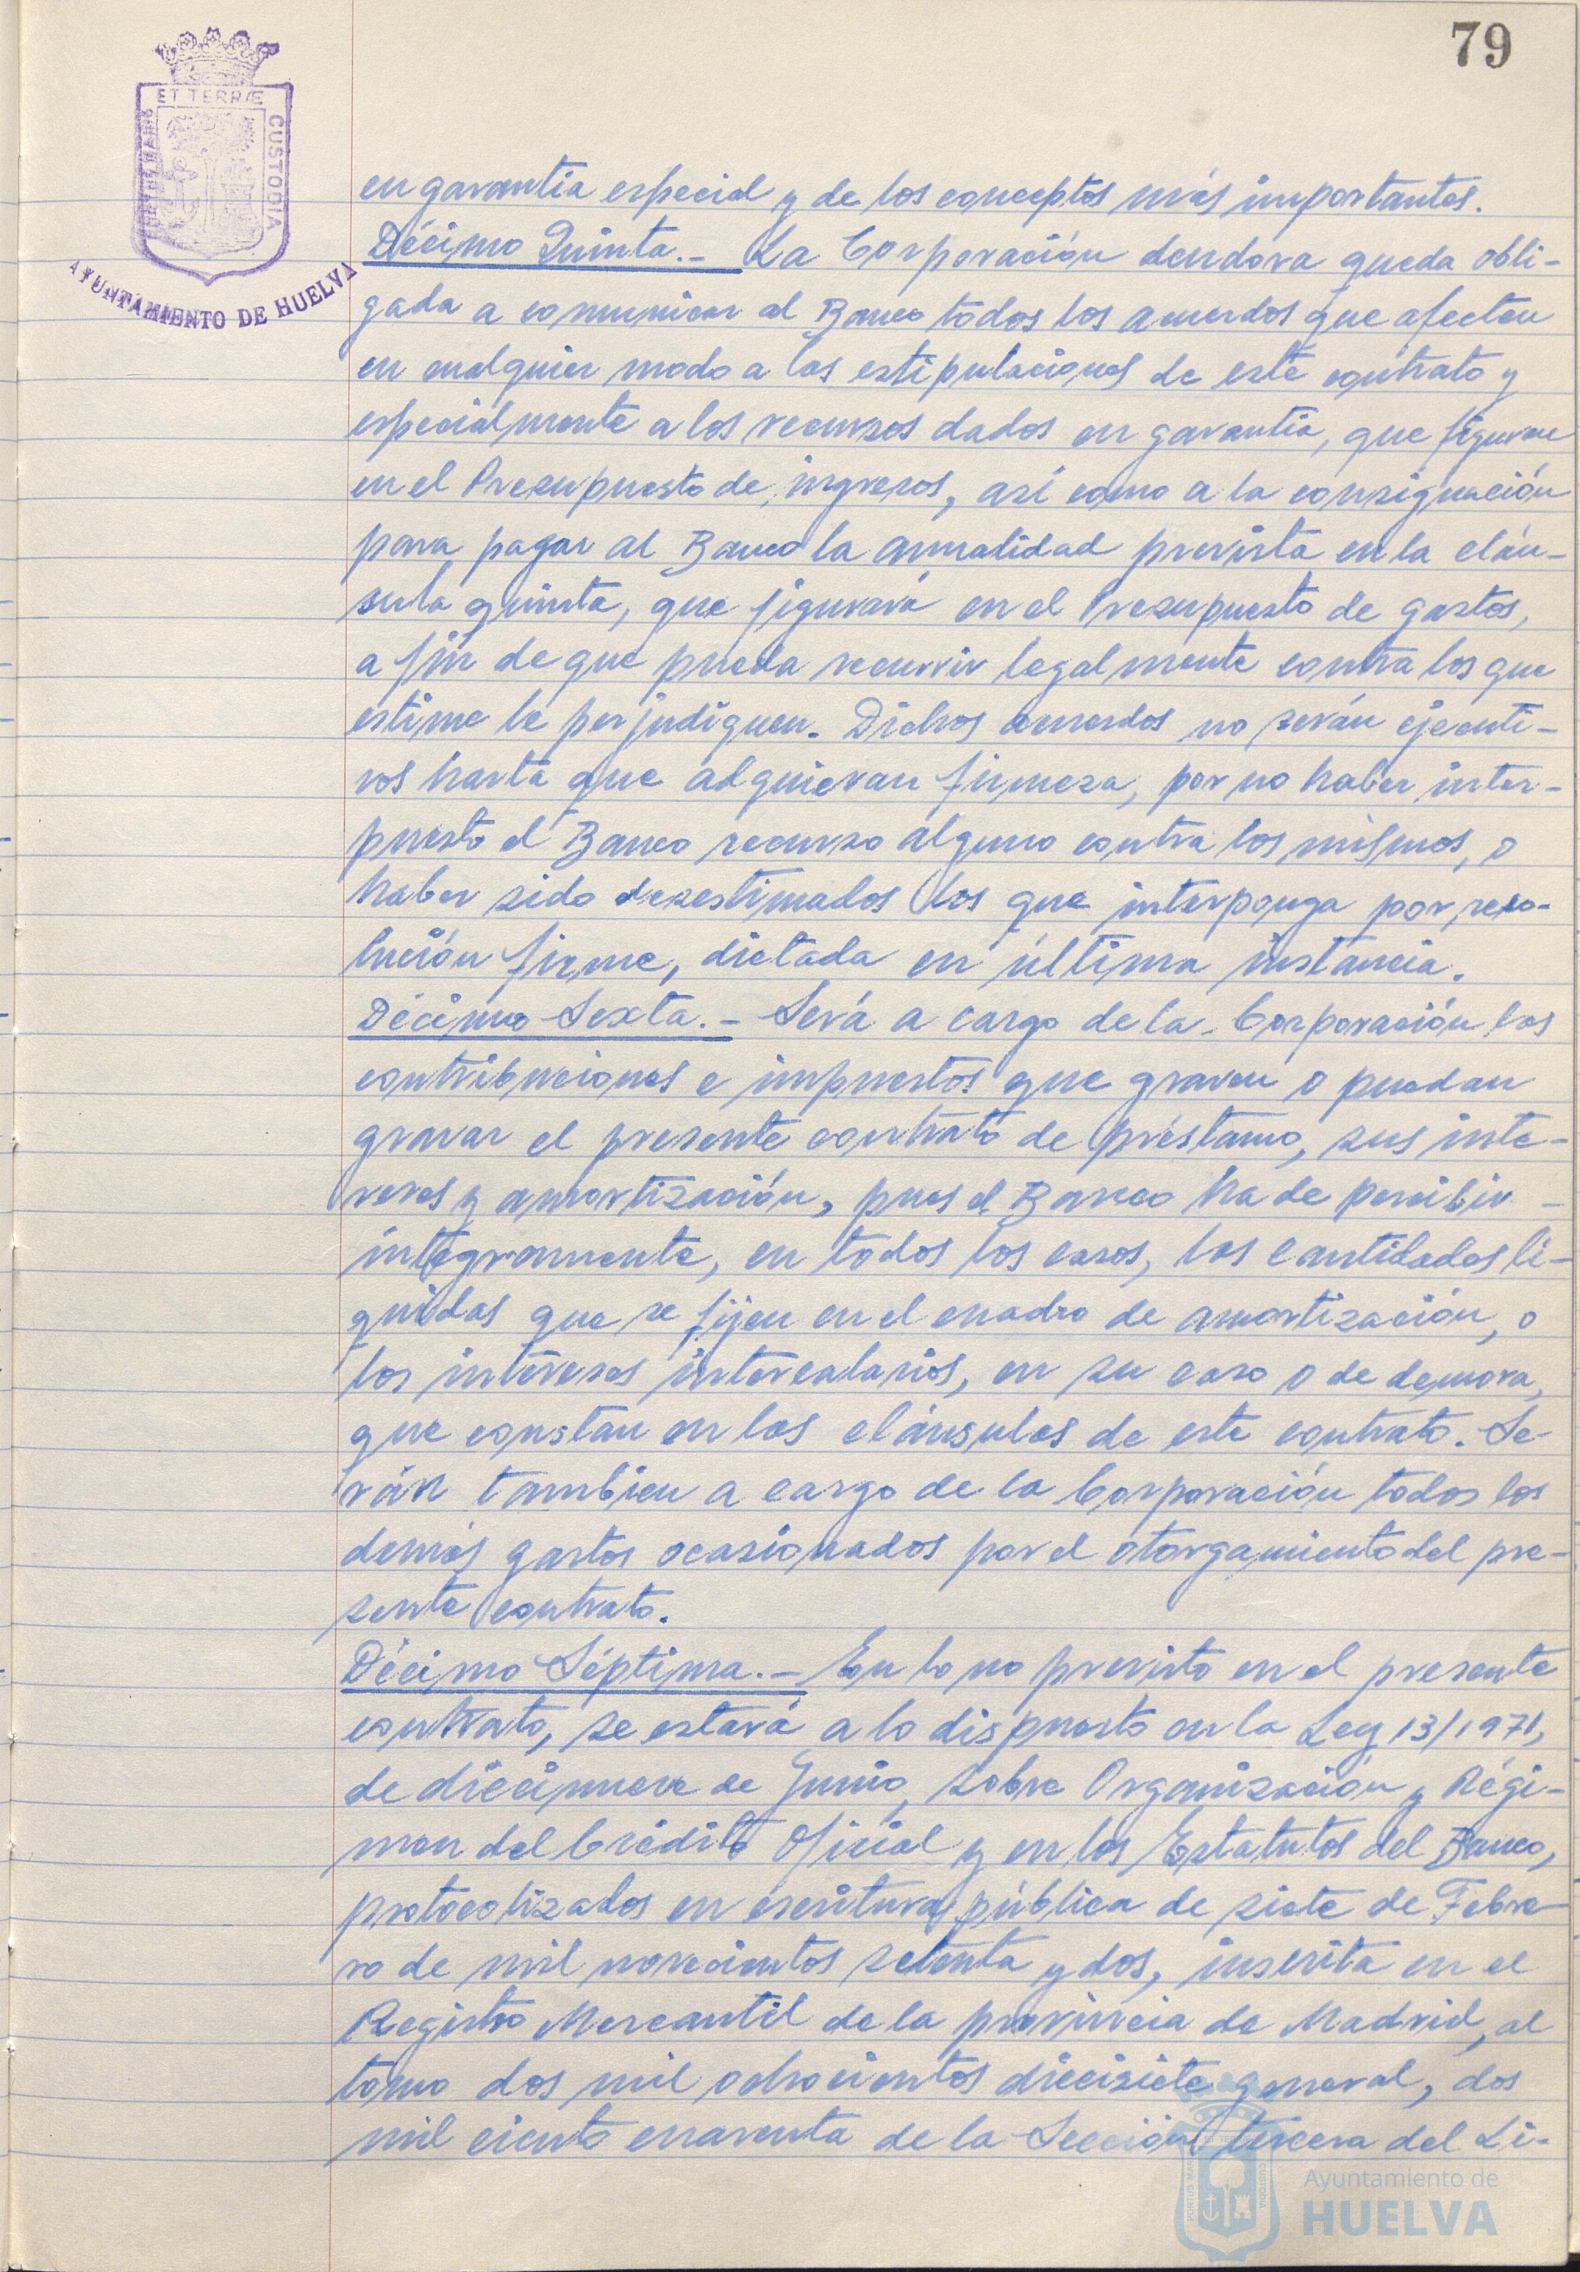 79
ET TERRÆ
CUSTODIA
AYUNTAMIENTO DE HUELVA
en garantía especial y de los conceptos más importantes.
Décimo Quinta.- La Corporación deudora queda obli-
gada a comunicar al Banco todos los acuerdos que afecten
en cualquier modo a las estipulaciones de este contrato y
especialmente a los recursos dados en garantía, que figuran
en el Presupuesto de ingresos, así como a la consignación
para pagar al Banco la anualidad prevista en la cláu-
sula quinta, que figurará en el Presupuesto de gastos,
a fin de que pueda recurrir legalmente contra los que
estime le perjudiquen. Dichos acuerdos no serán ejecuti-
vos hasta que adquieran firmeza, por no haber inter-
puesto el Banco recurso alguno contra los mismos, o
haber sido desestimados los que interponga por reso-
lución firme, dictada en última instancia.
Décimo Sexta.- Será a cargo de la Corporación las
contribuciones e impuestos que graven o puedan
gravar el presente contrato de préstamo, sus inte-
reses y amortización, pues el Banco ha de percibir -
integramente, en todos los casos, las cantidades lí-
quidas que se fijen en el cuadro de amortización, o
los intereses intercalarios, en su caso o de demora,
que constan en las cláusulas de este contrato. Se-
rán tambien a cargo de la Corporación todos los
demás gastos ocasionados por el otorgamiento del pre-
sente contrato.
Décimo Séptima.- En lo no previsto en el presente
contrato, se estará a lo dispuesto en la Ley 13/1971,
de diecinueve de Junio, sobre Organización y Régi-
men del Crédito Oficial y en los Estatutos del Banco,
protocolizados en escritura pública de siete de Febre-
ro de mil novecientos setenta y dos, inscrita en el
Registro Mercantil de la provincia de Madrid, al
tomo dos mil ochocientos diecisiete general, dos
mil ciento cuarenta de la Sección tercera del Li-
Ayuntamiento de
HUELVA